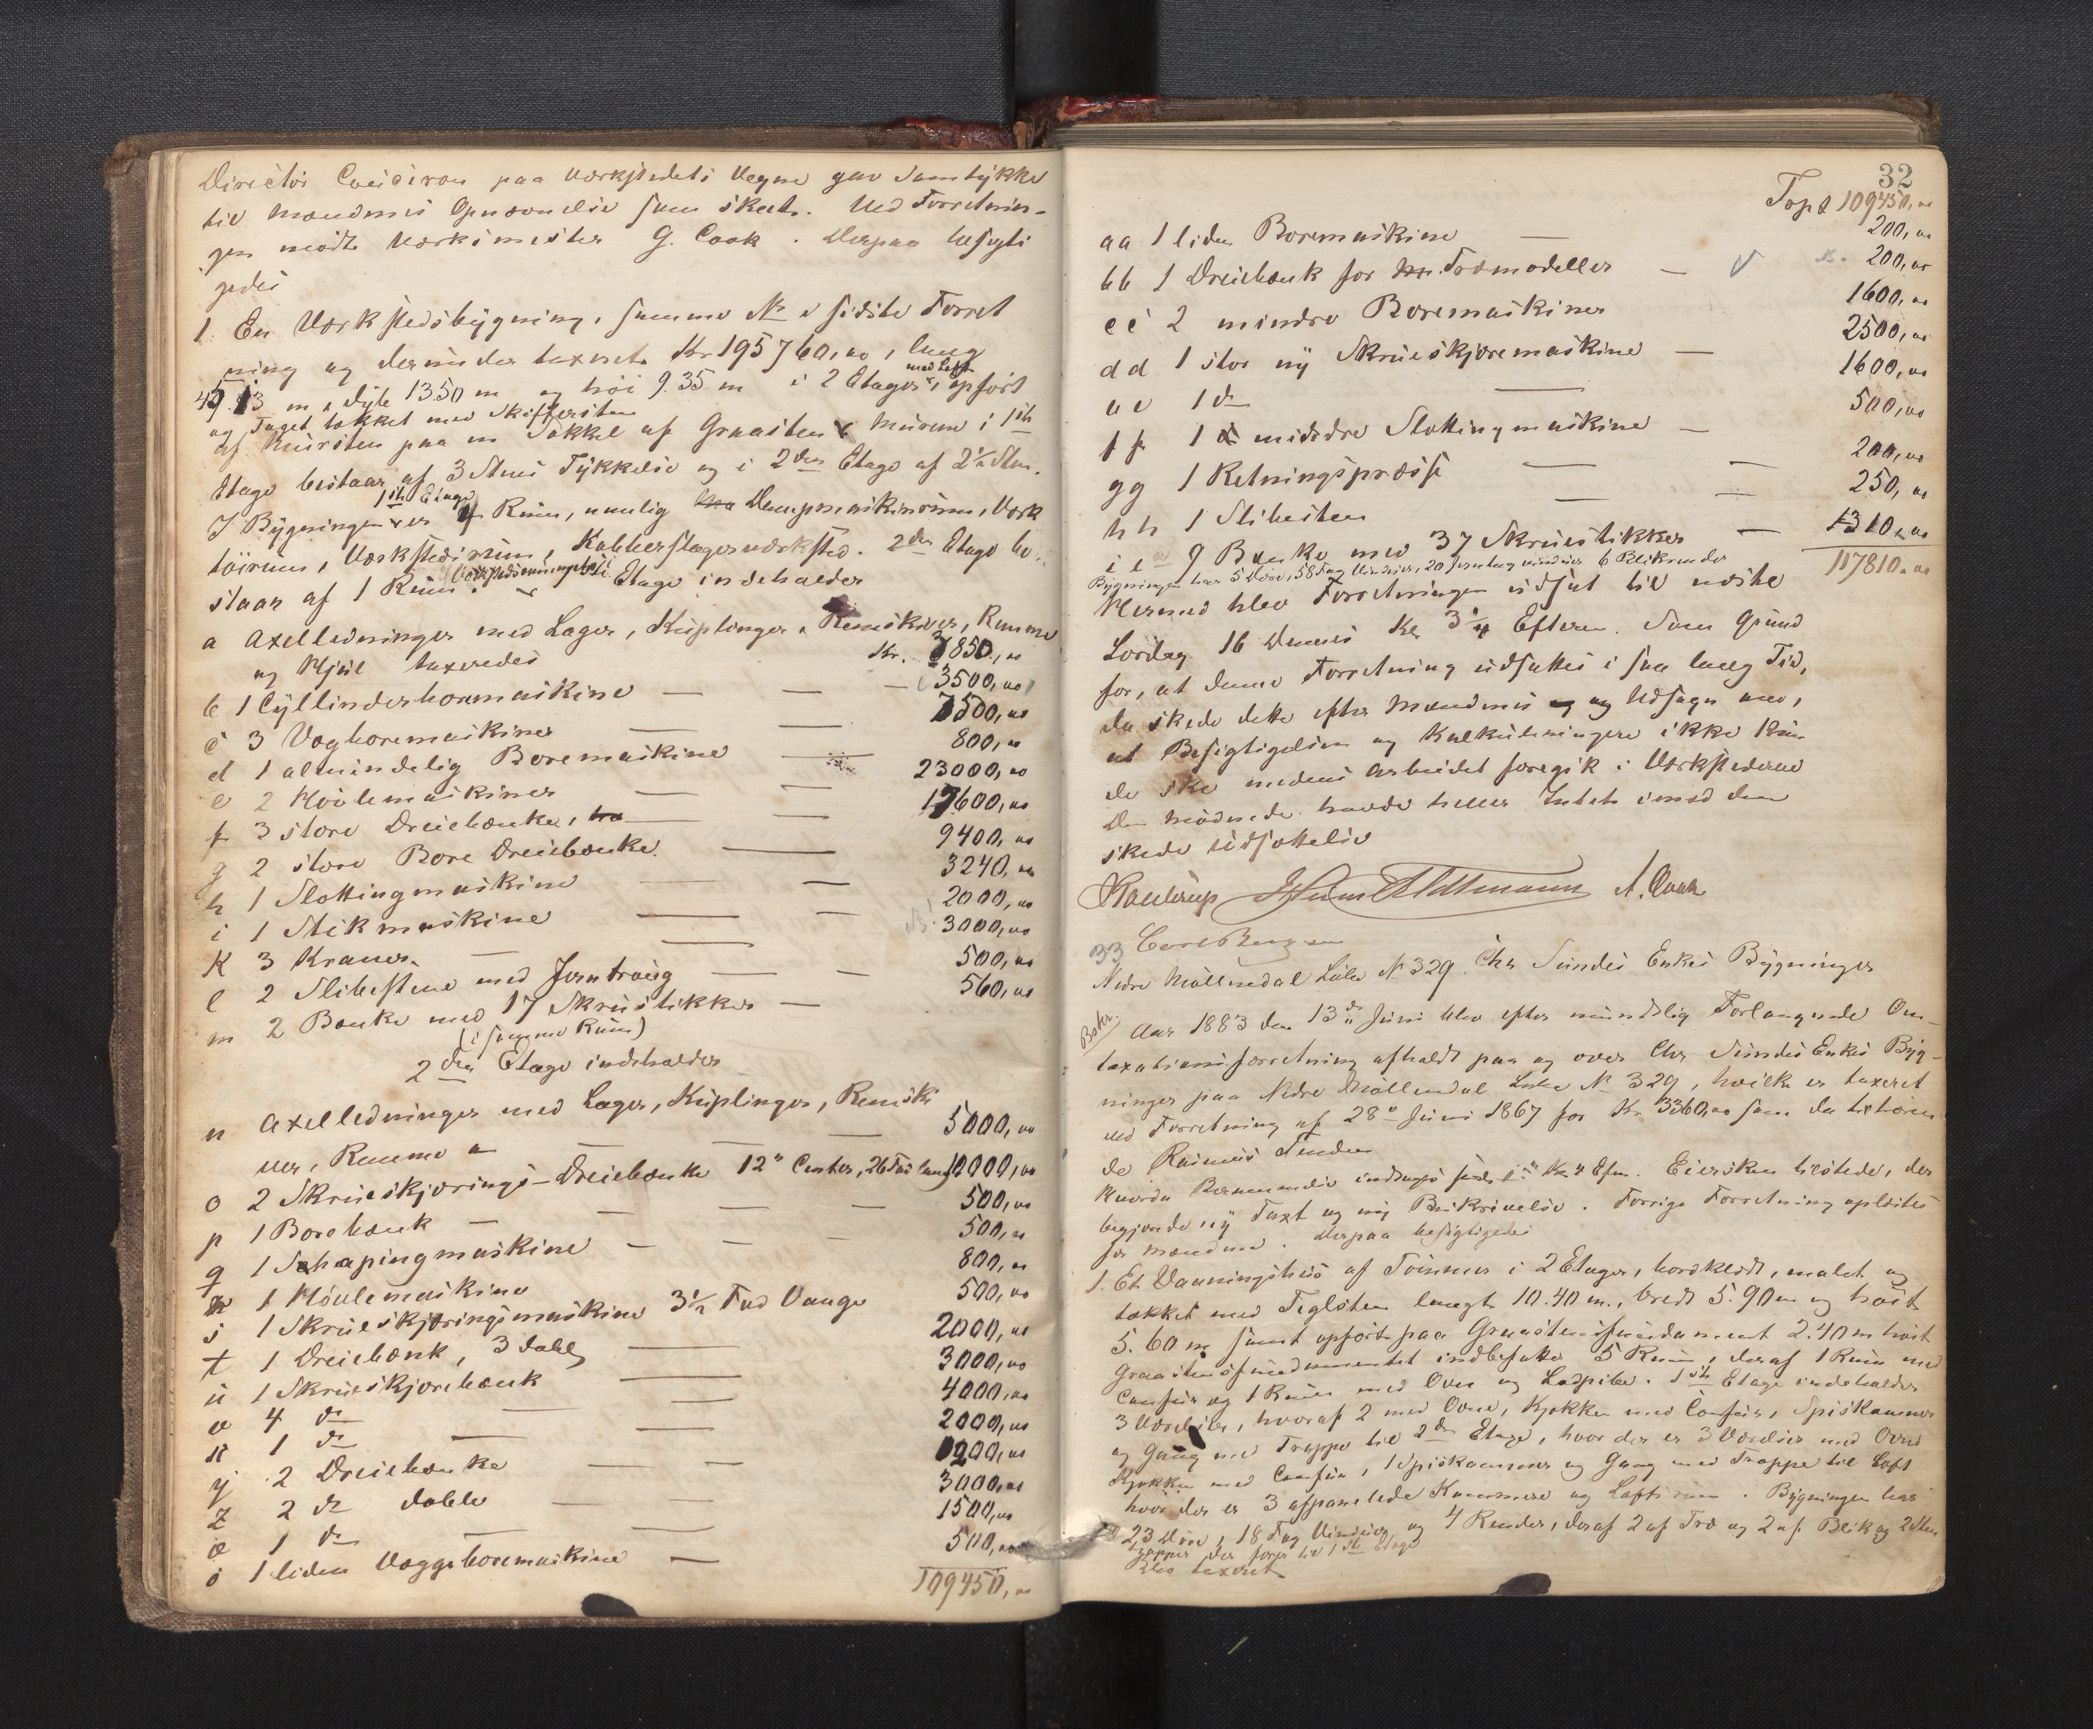 Director Coucheron paa Værkstedets Vegne gav Samtykke
til Mændenes Opnævnelse som skeet. Ved Forretnin-
gen mødte Værksmester G. Cook. Derpaa besigti
gedes
1. En Værkstedsbygning, samme No i sidste Forret
ning og derunder taxeret Kr 195760,00, lang
45.13 m, dyb 13.50 m og høi 9.35 m i 2 Etager, med Loft opført
og Taget tækket med Skifersten
af Mursten paa en Sokkel af Graasten. Murene i 1ste
Etage bestaar af 3 Stens Tykkelse og i 2den Etage af 2½ Sten.
I Bygningen 1ste Etage er 4 Rum, nemlig Dampmaskinrum, Værk
tøirum, Værkstedsrum, Kobberslagerværksted. 2den Etage be-
staar af 1 Rum. Værkstedsrummet i 1ste Etage indeholder
a Axelledninger med Lager, Kuplinger, Remskiver, Remme
og Hjul taxeredes Kr. 7850,00
b 1 Cyllinderboremaskine — — — 3500,00
c 3 Vægboremaskiner — — 7500,00
d 1 almindelig Boremaskine — 800,00
e 2 Høvlemaskiner — — 23000,00
f 3 store Dreiebænke, — — 17600,00
g 2 store Bore Dreiebænke. — 9400,00
h 1 Slottingmaskine — — 3240,00
i 1 Stikmaskine — — 2000,00
K 3 Kraner. — — 3000,00
l 2 Slibestene med Jerntraug — — 500,00
m 2 Bænke med 17 Skruestikker — 560,00
(i samme Rum)
2den Etage indeholder
n Axelledninger med Lager, Kuplinger, Remski
ver, Remme — — — 5000,00
o 2 Skrueskjærings-Dreiebænke 12" Center, 26 Fod lang 10000,00
p 1 Borebænk — — — — 500,00
q 1 Schapingmaskine — — — 500,00
r 1 Høvlemaskine 800,00
s 1 Skrueskjæringsmaskine 3½ Fod Vange 500,00
t 1 Dreiebænk, 3 dobl — 2000,00
u 1 Skrueskjærebænk — 3000,00
v 4 do — — 4000,00
x 1 do — — 2000,00
y 2 Dreiebænke — — 1200,00
z 2 do doble — — 3000,00
æ 1 do — — 1500,00
ø 1 liden Væggeboremaskine — 500,00
109450,00
32
Tspt 109450,00
aa 1 liden Boremaskine — 200,00
bb 1 Dreiebænk for Træmodeller — 200,00
cc 2 mindre Boremaskiner 1600,00
dd 1 stor ny Skrueskjæremaskine — 2500,00
ee 1 do — 1600,00
ff 1 mindre Slottingmaskine — 500,00
gg 1 Retningspresse — — 200,00
hh 1 Slibesten — — 250,00
ii 9 Bænke med 37 Skruestikker — 1310,00
Bygningen har 5 Døre, 58 Fag Vinduer, 20 Jerntagvinduer 6 Blikrender
117810,00
Hermed blev Forretningen udsat til næste
Lørdag 16 Dennes Kl 3¼ Efterm. Som Grund
for, at denne Forretning udsattes i saa lang Tid,
da skede dette efter Mændenes Udsagn ved,
at Besigtigelsen og Kalkuleringen ikke kun
de ske medens Arbeidet foregik i Værkstederne
De Mødende havde heller Intet imod den
skede Udsættelse
A. Cook
33
Nedre Møllendal Litra No 329 Chr Sundes Enkes Bygninger
Aar 1883 den 13de Juni blev efter mundtlig Forlangende Om-
taxationsforretning afholdt paa og over Chr Sundes Enkes Byg-
ninger paa Nedre Møllendal Litra No 329, hvilke er taxeret
ved Forretning af 28de Juni 1867 for Kr 3360,00 som da tilhøren
de Rasmus
Eiersken tilstede, der
begjærede ny Taxt og ny Beskrivelse. Forrige Forretning oplæstes
for Mændene. Derpaa besigtigedes
1. Et Vaaningshus af Tømmer i 2 Etager, bordklædt, malet og
tækket med Teglsten langt 10.40 m., bredt 5.90 m og høit
5.60 m samt opført paa Graastensfundament 2.40 m høit
Graastensfundamentet indbefatter 5 Rum, deraf 1 Rum med
Comfur og 1 Rum med Ovn og Ladpibe. 1ste Etage indeholder
3 Værelser, hvoraf 2 med Ovne, Kjøkken med Comfur, Spiskammer
og Gang med Trappe til 2den Etage, hvor der er 3 Værelser med Ovne
Kjøkken med Comfur, 1 Spiskammer og Gang med Trappe til Loft
hvor der er 3 afpanelede Kammere og Loftsrum. Bygningen har
23 Døre, 18 Fag Vinduer og 4 Render, deraf 2 af Træ og 2 af Blik og 2 Sten
trapper der fører til 1ste Etage
Blev taxeret